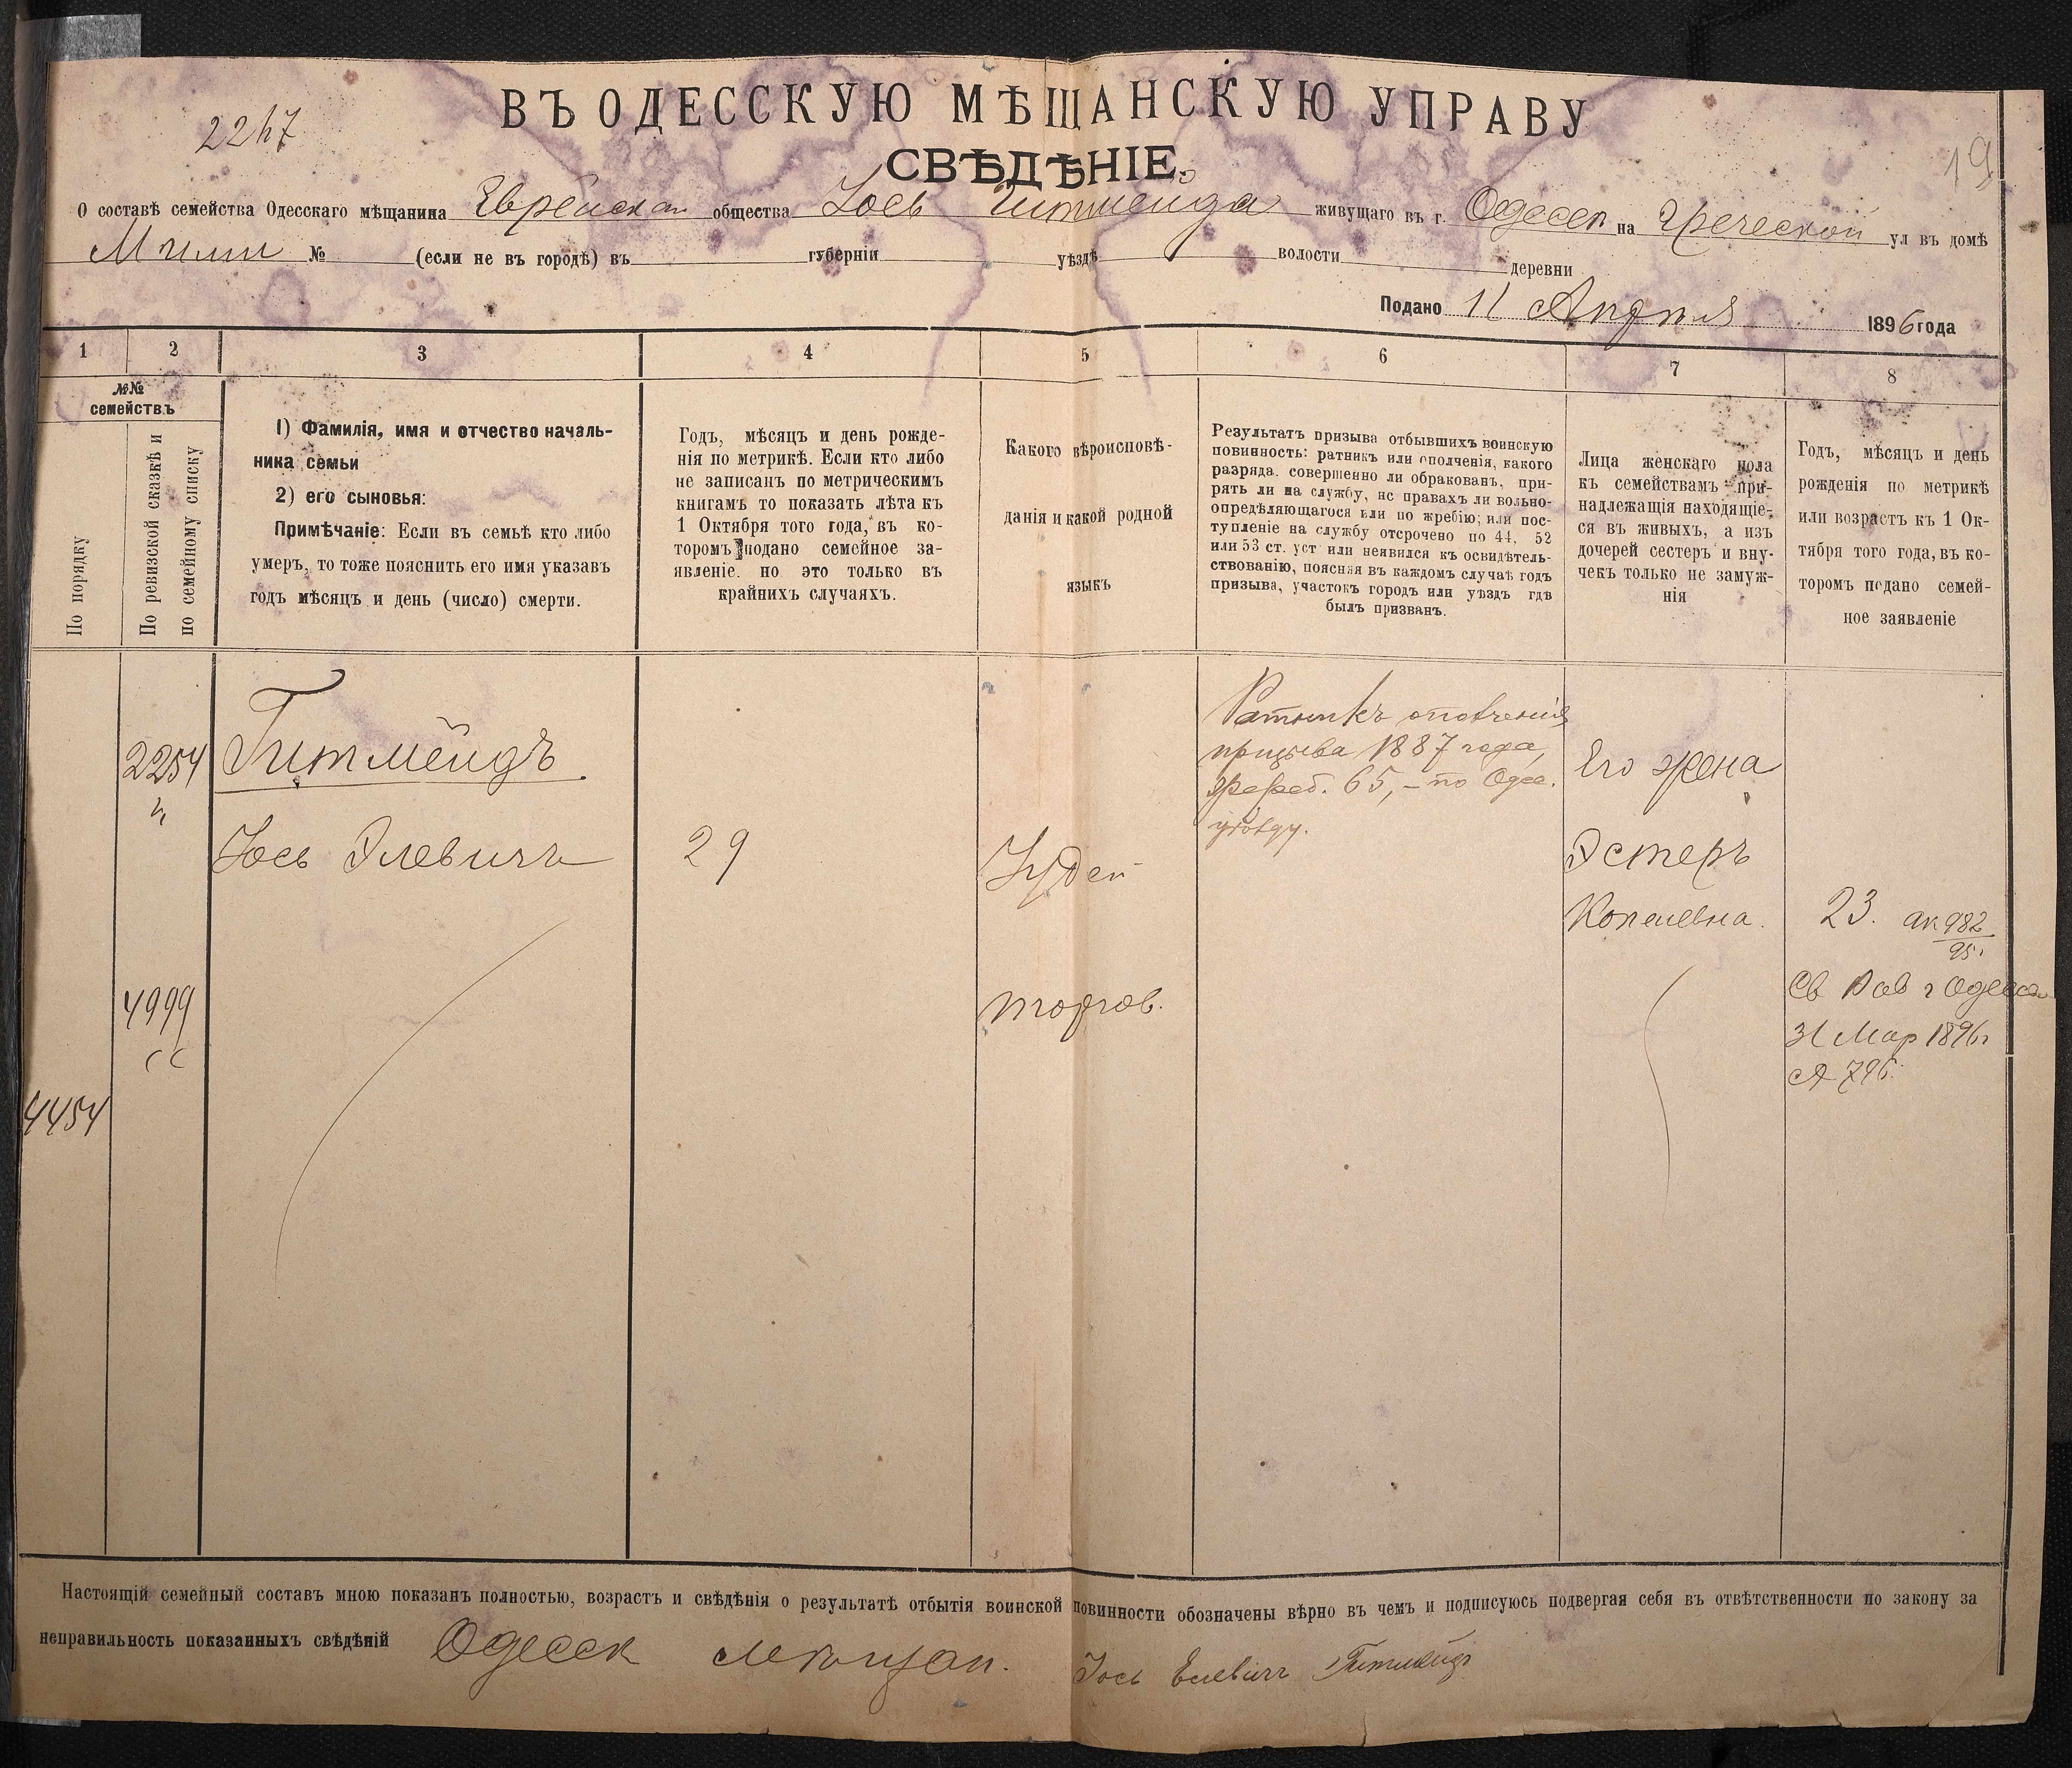 ВЪ ОДЕССКУЮ МѢЩАНСКУЮ УПРАВУ
2247
19
СВѢДѢНІЕ.
О составѣ семейства Одесскаго мѣщанина Еврейскаго общества Іось Гитмейда живущаго въ г. Одессѣ на Греческой ул въ домѣ
№ (если не въ городѣ) въ губерніи уѣздѣ волости деревни
Подано 11 Апрѣля 1896 года
1 2 3 4 5 6 7 8
№№
семействъ
По порядку
По ревизской сказкѣ и
по семейному списку
1) Фамилія, имя и отчество началь-
ника семьи
2) его сыновья:
Примѣчаніе: Если въ семьѣ кто либо
умеръ, то тоже пояснить его имя указавъ
годъ мѣсяцъ и день (число) смерти.
Годъ, мѣсяцъ и день рожде-
нія по метрикѣ. Если кто либо
не записанъ по метрическимъ
книгамъ то показать лѣта къ
1 Октября того года, въ ко-
торомъ подано семейное за-
явленіе. но это только въ
крайнихъ случаяхъ.
Какого вѣроисповѣ-
данія и какой родной
языкъ
Результатъ призыва отбывшихъ воинскую
повинность: ратникъ или ополченія, какого
разряда. совершенно ли обракованъ, при-
рять ли на службу, нс правахъ ли вольно-
опредѣляющагося или по жребію; или пос-
тупленіе на службу отсрочено по 44, 52
или 53 ст. уст или неявился къ освидѣтель-
ствованію, поясняя въ каждомъ случаѣ годъ
призыва, участокъ городъ или уѣздъ гдѣ
былъ призванъ.
Лица женскаго пола
къ семействамъ при-
надлежащія находящіе-
ся въ живыхъ, а изъ
дочерей сестеръ и вну-
чекъ только не замуж-
нія
Годъ, мѣсяцъ и день
рожденія по метрикѣ
или возрастъ къ 1 Ок-
тября того года, въ ко-
торомъ подано семей-
ное заявленіе
2254
4999
4454
Гитмейдъ
Іось Элевичъ
29
Іудей
торгов.
Ратникъ ополченія
призыва 1887 года,
жереб. 65, – по Одес.
уѣзду.
Его жена
Эстеръ
Копелевна.
23. ак 982
95.
Св Рав г Одесса
31 Мар 1896 г
796
Настоящій семейный составъ мною показанъ полностью, возрастъ и свѣдѣнія о результатѣ отбытія воинской повинности обозначены вѣрно въ чемъ и подписуюсь подвергая себя въ отвѣтственности по закону за
неправильность показанныхъ свѣдѣній Одесск мѣщан. Іось Елевичъ Гитмейдъ